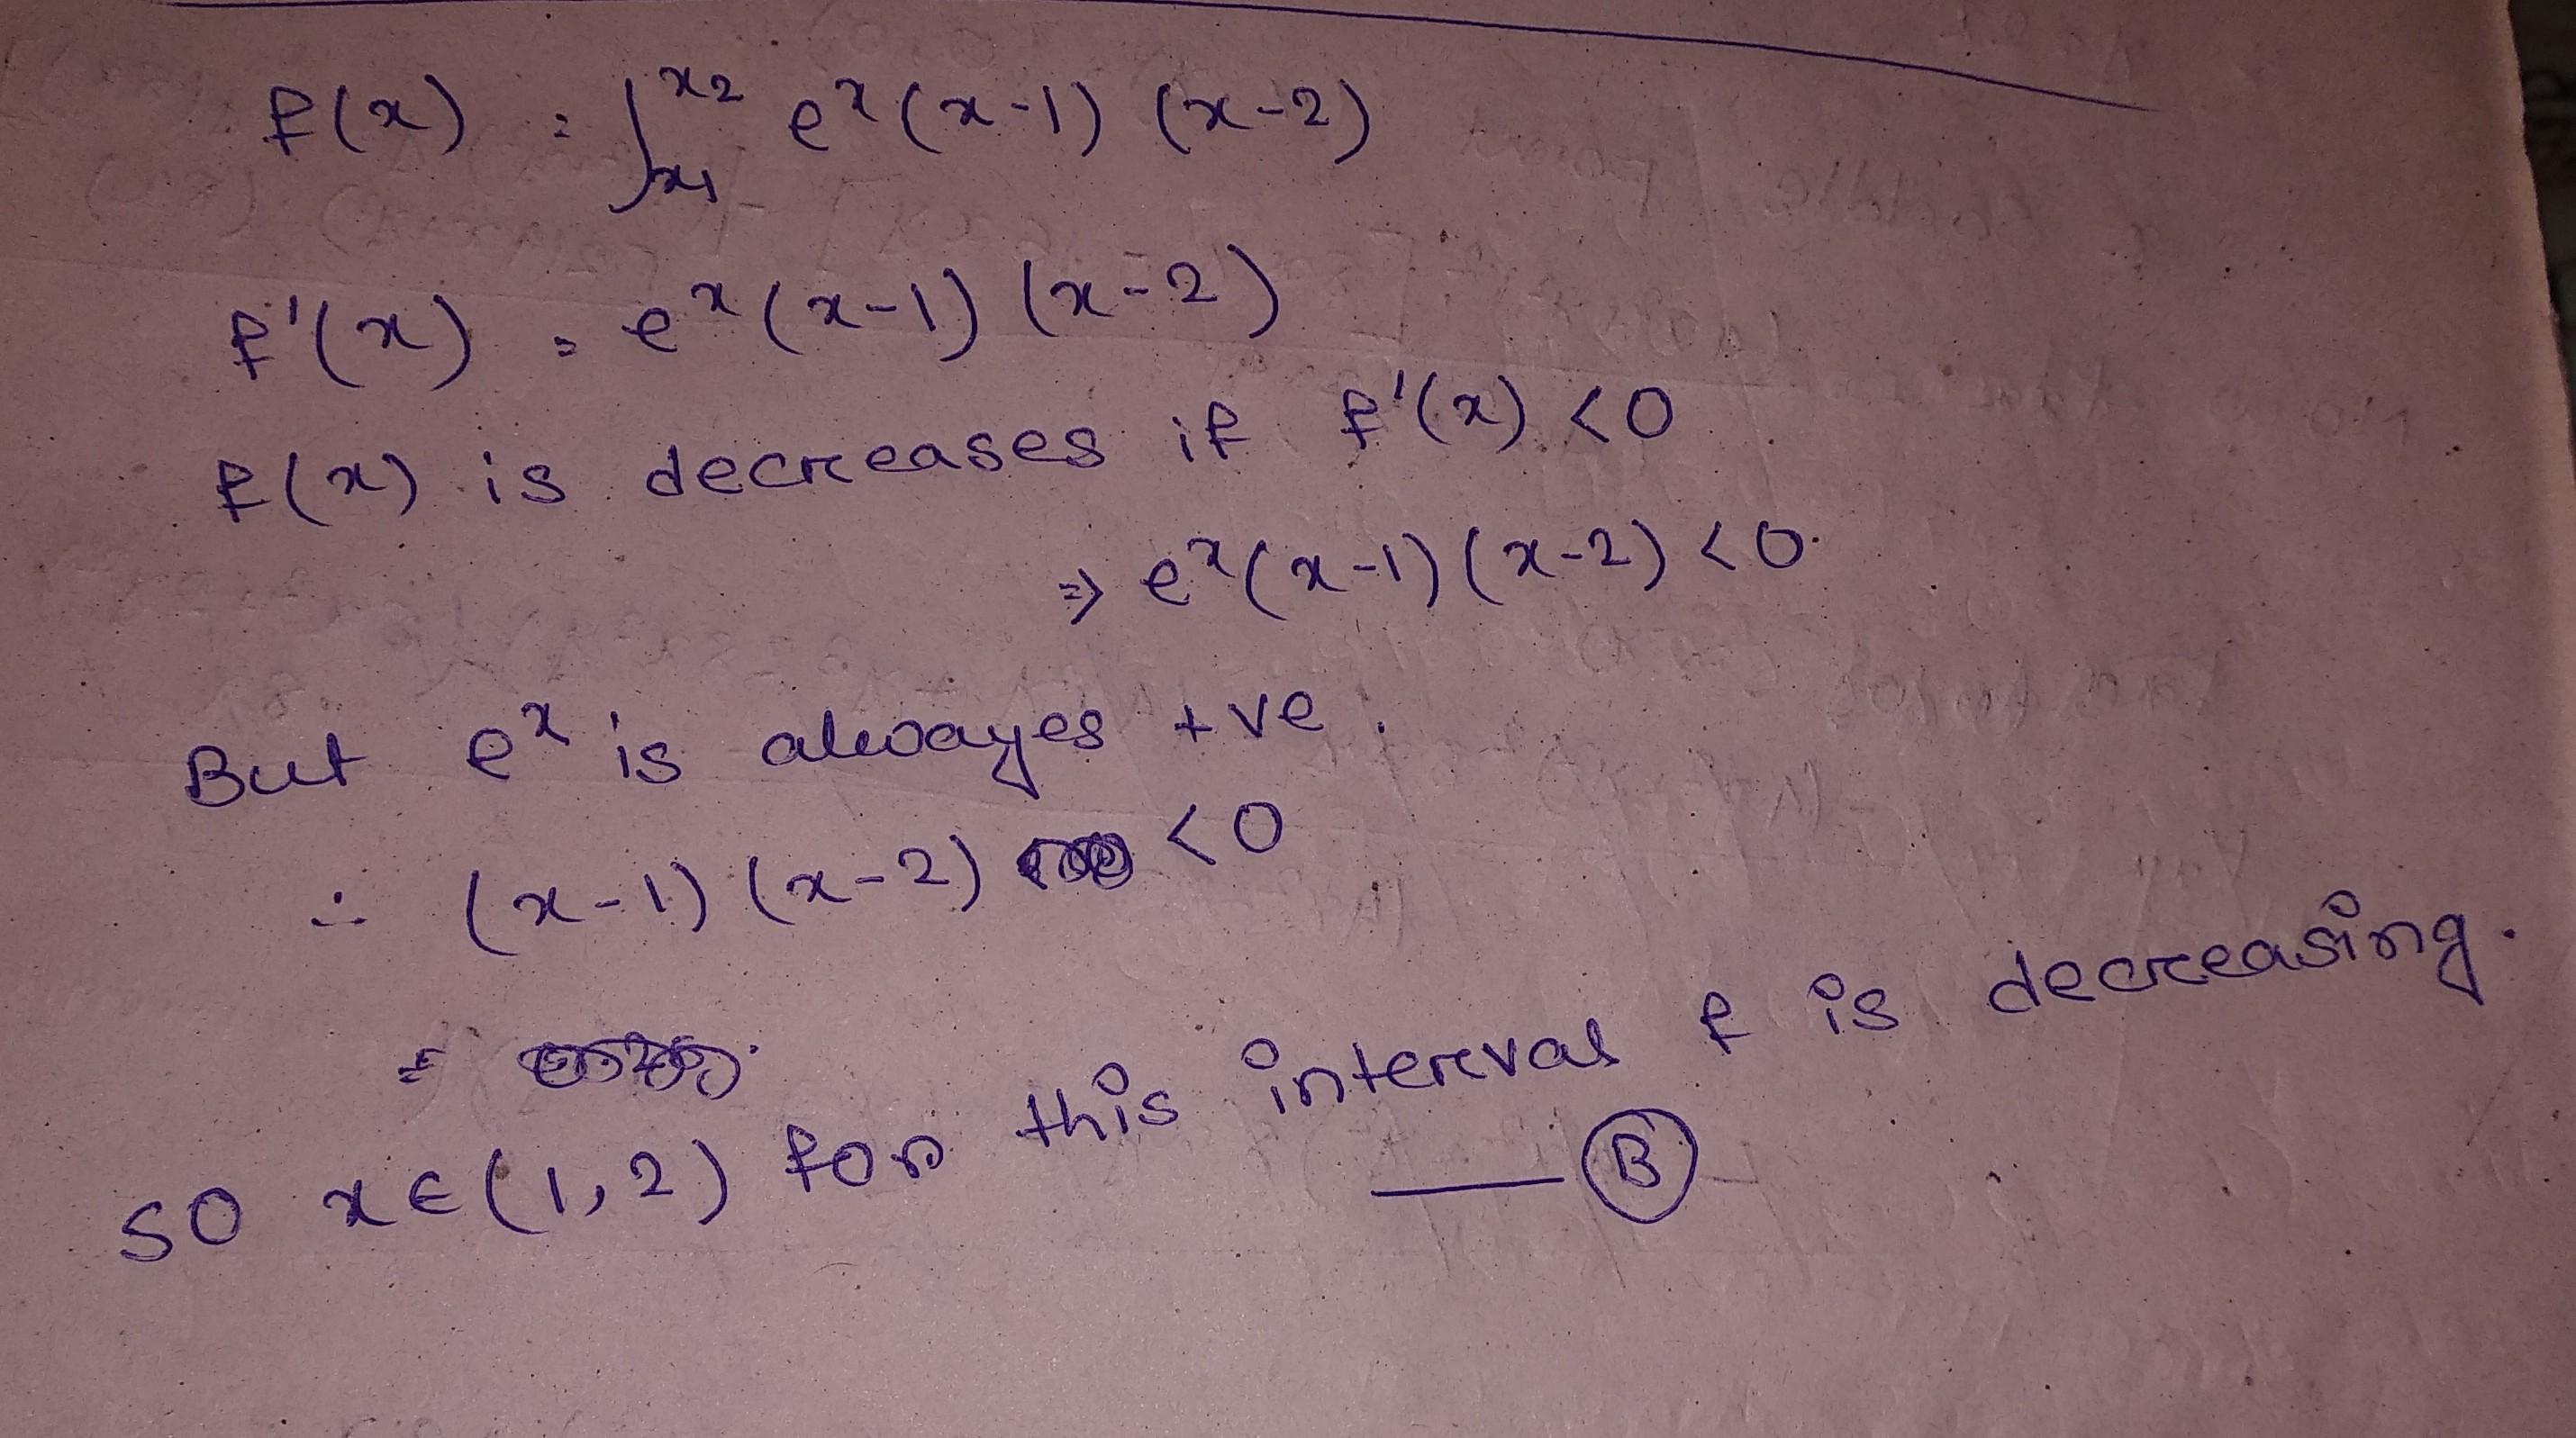 f(x) = ∫_{x1}^{x2} e^x (x-1) (x-2)
f'(x) = e^x (x-1) (x-2)
f(x) is decreases if f'(x) <0
⇒ e^x (x-1) (x-2) <0.
But e^x is alwayes +ve.
∴ (x-1) (x-2) <0
=
so x ∈ (1,2) for this interval f is decreasing.
— B